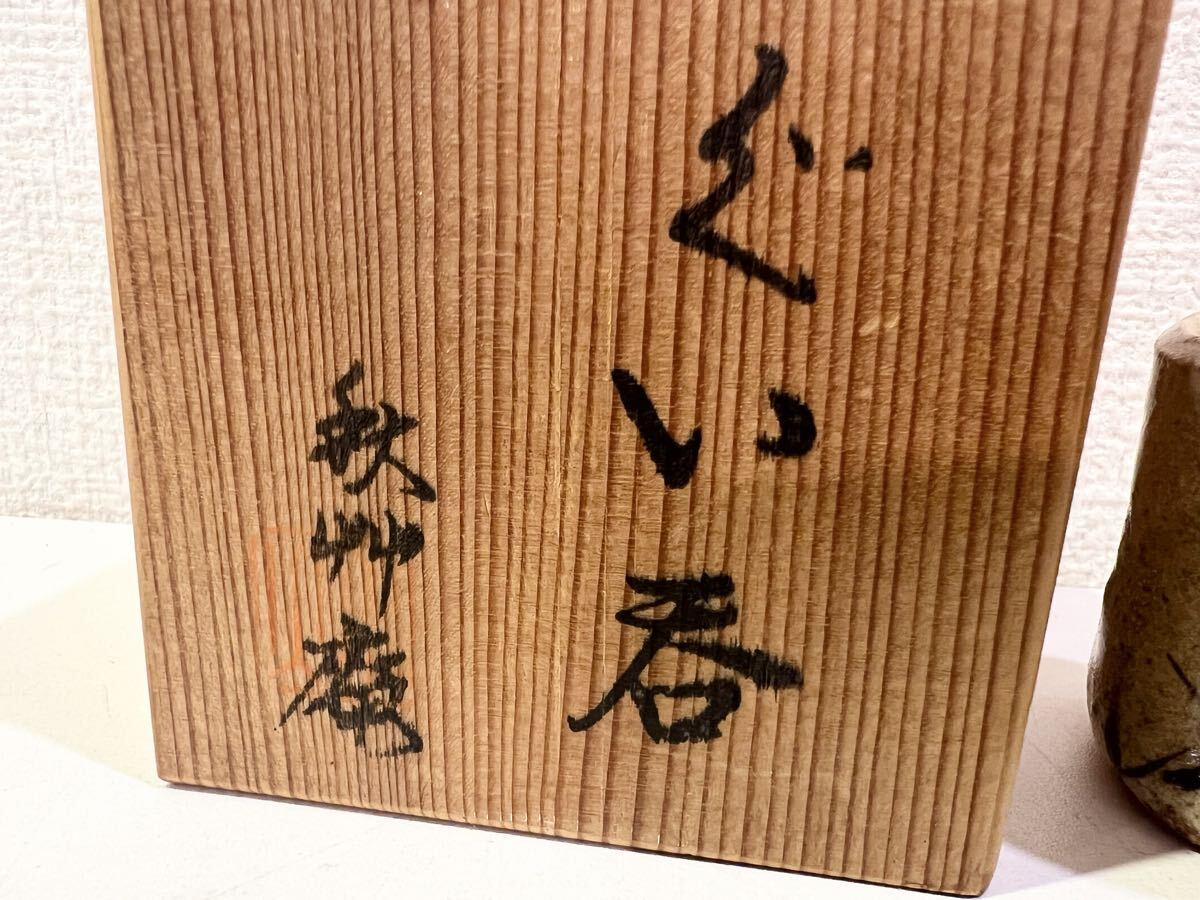 ぐい呑
秋艸